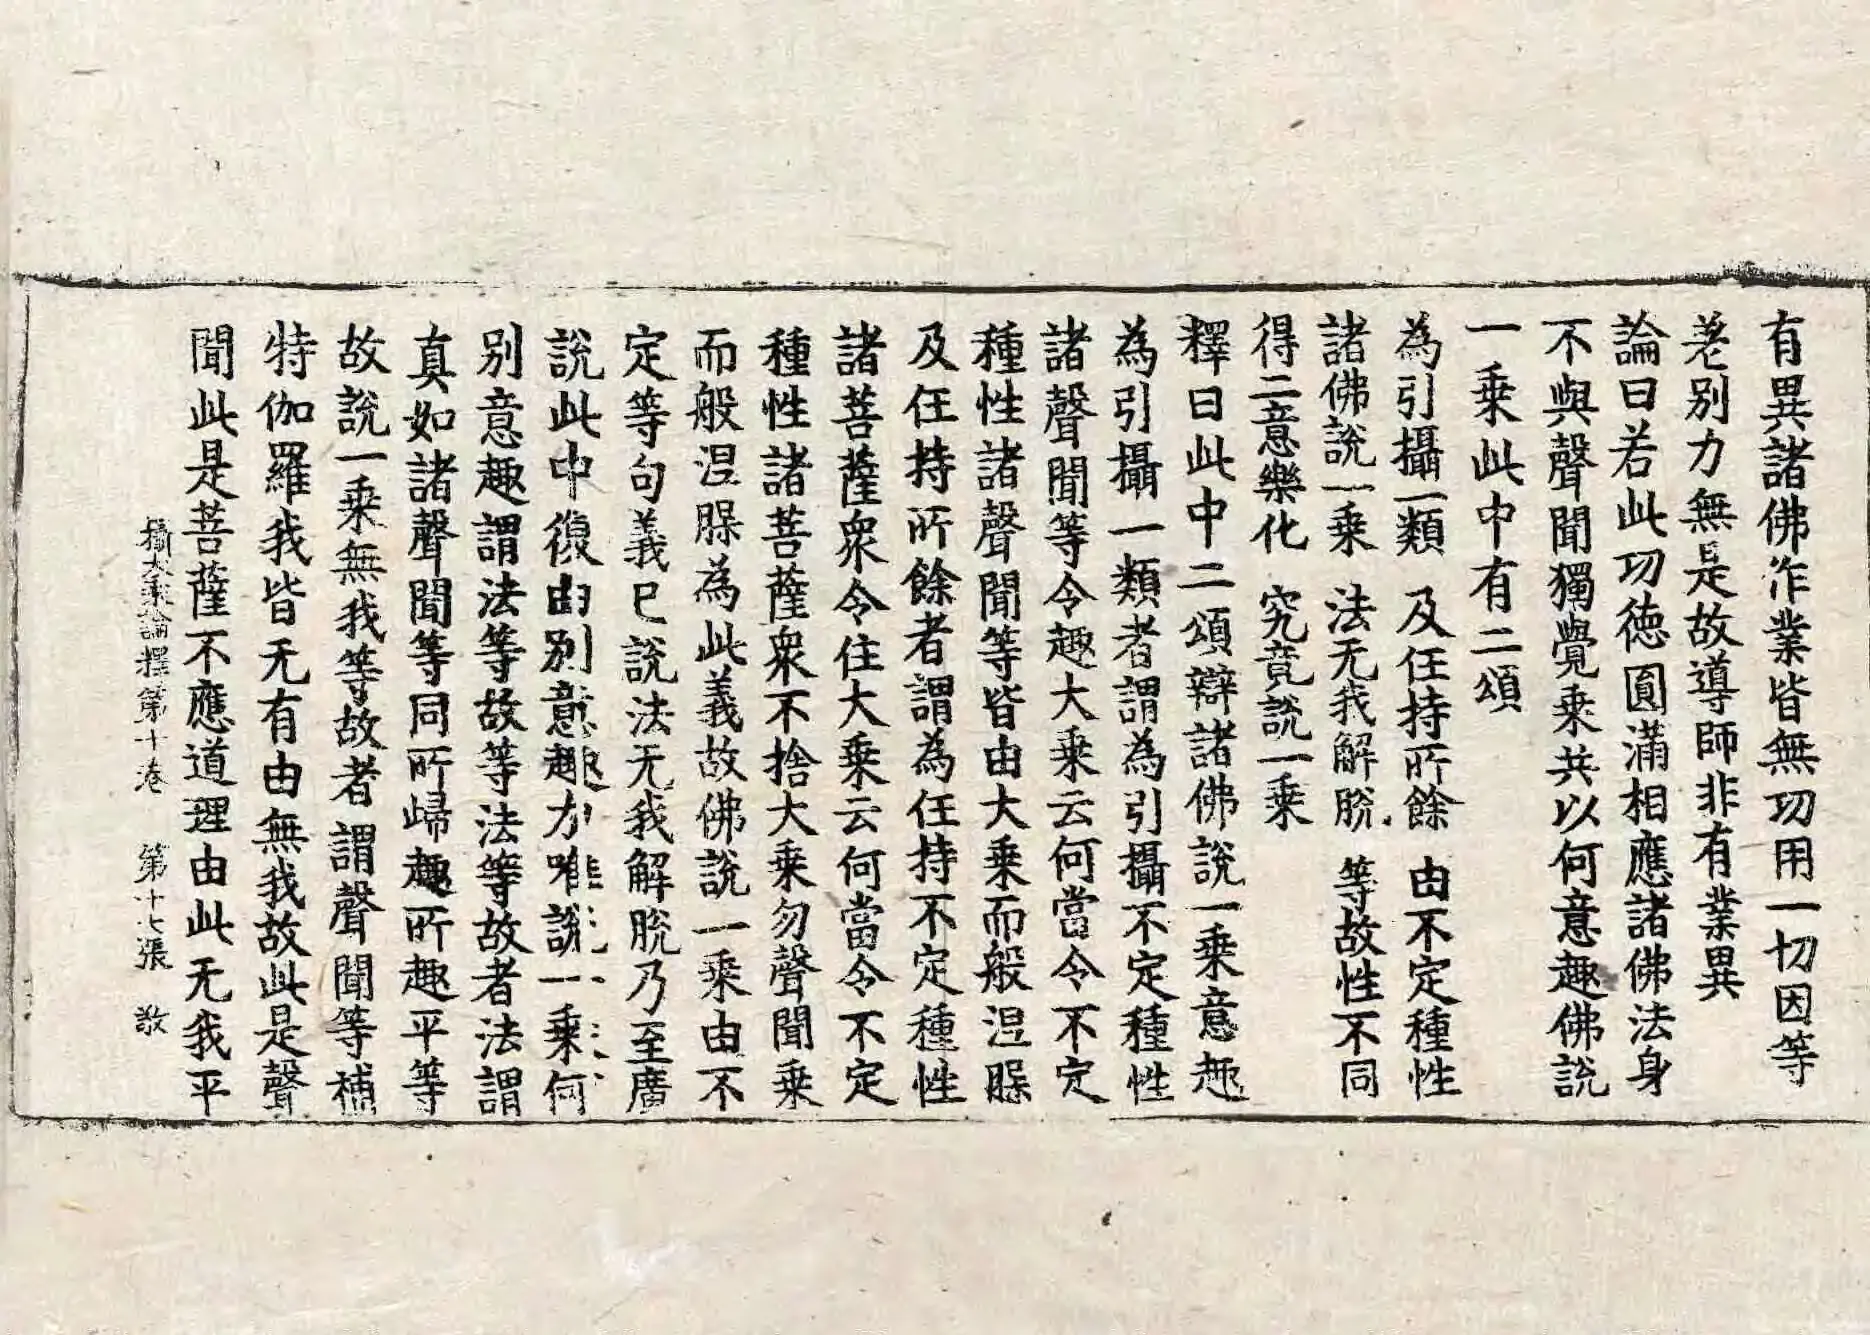 有異諸佛作業皆無功用一切因等
差別力無是故導師非有業異
論曰若此功德圓滿相應諸佛法身
不與聲聞獨覺乘共以何意趣佛說
一乘此中有二頌
為引攝一類　及任持所餘　由不定種性
諸佛說一乘　法无我解脫　等故性不同
得二意樂化　究竟說一乘
釋曰此中二頌辯諸佛說一乘意趣
為引攝一類者謂為引攝不定種性
諸聲聞等令趣大乘云何當令不定
種性諸聲聞等皆由大乘而般涅槃
及任持所餘者謂為任持不定種性
諸菩薩衆令住大乘云何當令不定
種性諸菩薩衆不捨大乘勿聲聞乘
而般涅槃為此義故佛說一乘由不
定等句義已說法无我解脫乃至廣
說此中復由別意趣力唯說一乘何
別意趣謂法等故等法等故者法謂
真如諸聲聞等同所歸趣所趣平等
故說一乘無我等故者謂聲聞等補
特伽羅我皆无有由無我故此是聲
聞此是菩薩不應道理由此无我平
攝大乘論釋第十卷　第十七張　敬